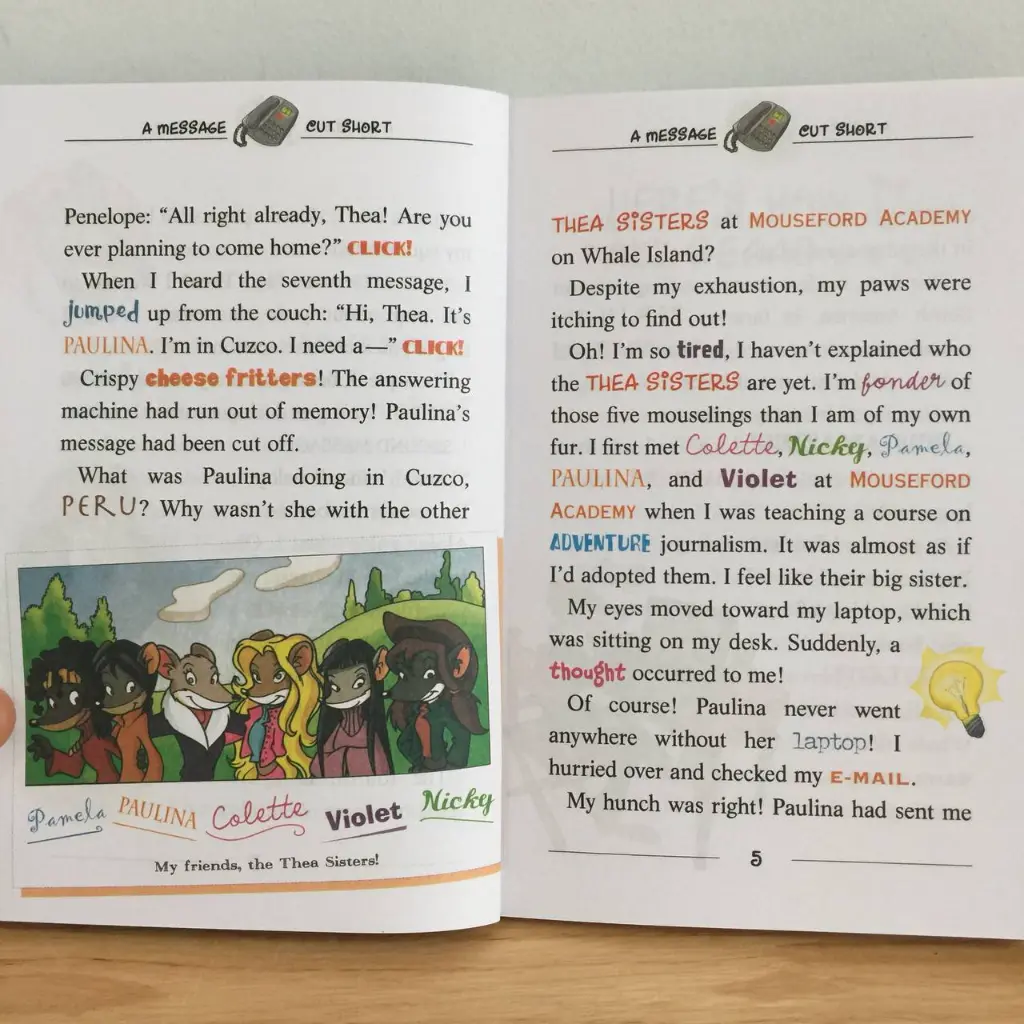 A MESSAGE CUT SHORT
Penelope: “All right already, Thea! Are you
ever planning to come home?” CLICK!
When I heard the seventh message, I
jumped up from the couch: “Hi, Thea. It’s
PAULINA. I’m in Cuzco. I need a—” CLICK!
Crispy cheese fritters! The answering
machine had run out of memory! Paulina’s
message had been cut off.
What was Paulina doing in Cuzco,
PERU? Why wasn’t she with the other
Pamela PAULINA Colette Violet Nicky
My friends, the Thea Sisters!
A MESSAGE CUT SHORT
THEA SISTERS at MOUSEFORD ACADEMY
on Whale Island?
Despite my exhaustion, my paws were
itching to find out!
Oh! I’m so tired, I haven’t explained who
the THEA SISTERS are yet. I’m fonder of
those five mouselings than I am of my own
fur. I first met Colette, Nicky, Pamela,
PAULINA, and Violet at MOUSEFORD
ACADEMY when I was teaching a course on
ADVENTURE journalism. It was almost as if
I’d adopted them. I feel like their big sister.
My eyes moved toward my laptop, which
was sitting on my desk. Suddenly, a
thought occurred to me!
Of course! Paulina never went
anywhere without her laptop! I
hurried over and checked my E-MAIL.
My hunch was right! Paulina had sent me
5